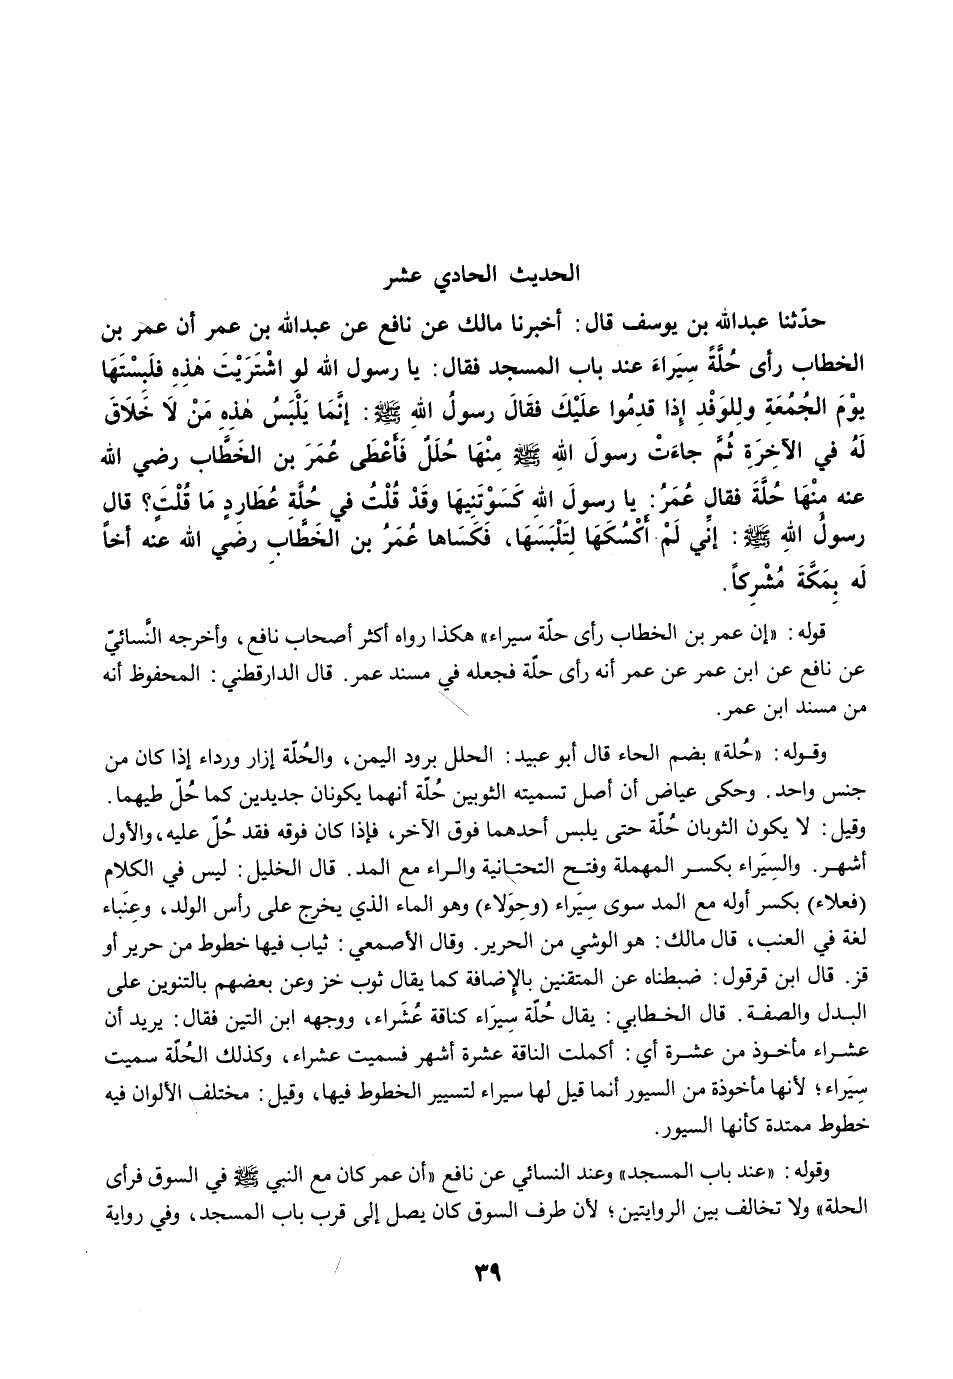 الحديث الحادي عشر
حدّثنا عبدالله بن يوسف قال: أخبرنا مالك عن نافع عن عبدالله بن عمر أن عمر بن
الخطاب رأى حُلَّةً سِيَراءَ عند باب المسجد فقال: يا رسول الله لو اشْتَرَيْتَ هٰذِهِ فلَبِسْتَهَا
يوْمَ الجُمُعَةِ وللوَفْدِ إِذا قدِمُوا علَيْكَ فقَالَ رسولُ اللهِ ﷺ: إنَّما يَلْبَسُ هٰذِهِ مَنْ لَا خَلَاقَ
لَهُ في الآخِرَةِ ثُمَّ جاءَتْ رسولَ اللهِ ﷺ مِنْهَا حُلَلٌ فَأَعْطَى عُمَرَ بن الخَطَّاب رضي الله
عنه مِنْهَا حُلَّةً فقال عُمَرُ: يا رسولَ اللهِ كَسَوْتَنِيهَا وقَدْ قُلْتُ في حُلَّةِ عُطَارِدٍ مَا قُلْتَ؟ قال
رسولُ اللهِ ﷺ: إنِّي لَمْ أَكْسُكَهَا لِتَلْبَسَهَا، فَكَسَاها عُمَرُ بن الخَطَّاب رضَي الله عنه أخاً
لَه بِمَكَّةَ مُشْرِكاً.
قوله: «إن عمر بن الخطاب رأى حلّة سيراء» هكذا رواه أكثر أصحاب نافع، وأخرجه النَّسائيّ
عن نافع عن ابن عمر عن عمر أنه رأى حلّة فجعله في مسند عمر. قال الدارقطني: المحفوظ أنه
من مسند ابن عمر.
وقوله: «حُلة» بضم الحاء قال أبو عبيد: الحلل برود اليمن، والحُلّة إزار ورداء إذا كان من
جنس واحد. وحكى عياض أن أصل تسميته الثوبين حُلّة أنهما يكونان جديدين كما حُلّ طيهما.
وقيل: لا يكون الثوبان حُلّة حتى يلبس أحدهما فوق الآخر، فإذا كان فوقه فقد حُلّ عليه، والأول
أشهر. والسِيَراء بكسر المهملة وفتح التحتانية والراء مع المد. قال الخليل: ليس في الكلام
(فعلاء) بكسر أوله مع المد سوى سِيَراء (وحِوَلاء) وهو الماء الذي يخرج على رأس الولد، وعِنَباء
لغة في العنب، قال مالك: هو الوشي من الحرير. وقال الأصمعي: ثياب فيها خطوط من حرير أو
قز. قال ابن قرقول: ضبطناه عن المتقنين بالإِضافة كما يقال ثوب خز وعن بعضهم بالتنوين على
البدل والصفة. قال الخطابي: يقال حُلّة سِيرَاء كناقة عُشَراء، ووجهه ابن التين فقال: يريد أن
عشراء مأخوذ من عشرة أي: أكملت الناقة عشرة أشهر فسميت عشراء، وكذلك الحُلّة سميت
سِيَراء؛ لأنها مأخوذة من السيور أنما قيل لها سيراء لتسيير الخطوط فيها، وقيل: مختلف الألوان فيه
خطوط ممتدة كأنها السيور.
وقوله: «عند باب المسجد» وعند النسائي عن نافع «أن عمر كان مع النبي ﷺ في السوق فرأى
الحلة» ولا تخالف بين الروايتين؛ لأن طرف السوق كان يصل إلى قرب باب المسجد، وفي رواية
٣٩